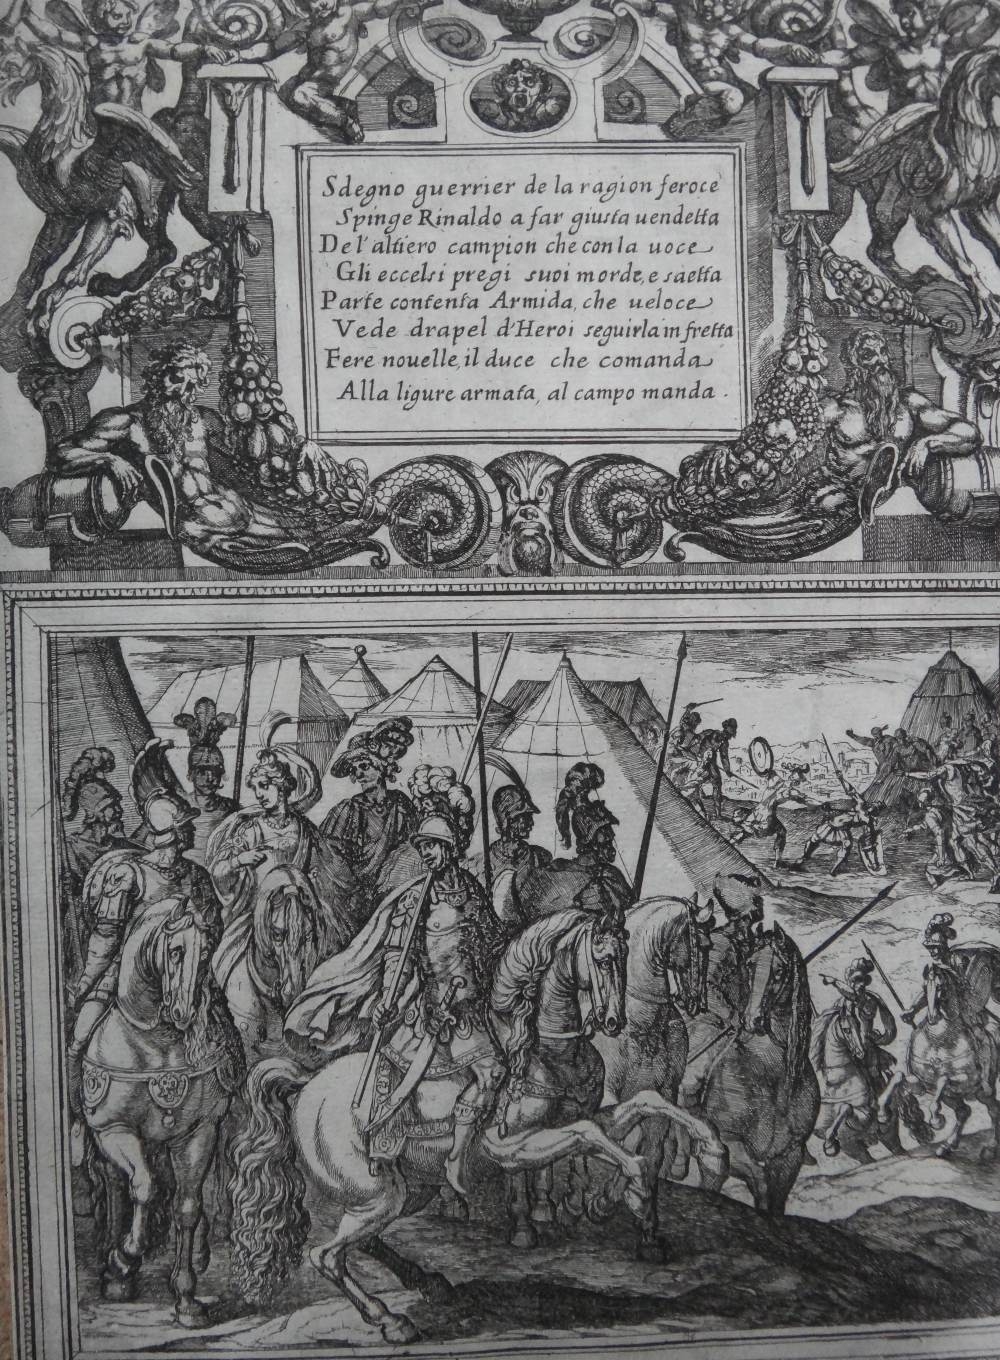 Sdegno guerrier de la ragion feroce
Spinge Rinaldo a far giusta uendetta
Del'altiero campion che con la uoce
Gli eccelsi pregi suoi morde, e saetta
Parte contenta Armida, che ueloce
Vede drapel d'Heroi seguirla in fretta
Fere nouelle, il duce che comanda
Alla ligure armata, al campo manda.